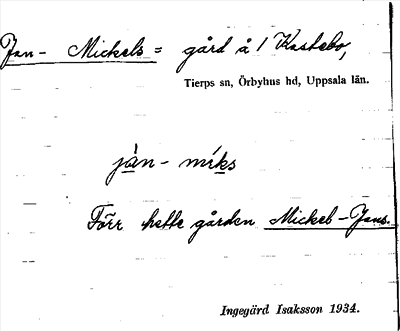 Jan-Mickels = gård å / Kastebo,
Tierps sn, Örbyhus hd, Uppsala län.
jàn-míks
Förr hette gården Mickel-Jans.
Ingegärd Isaksson 1934.